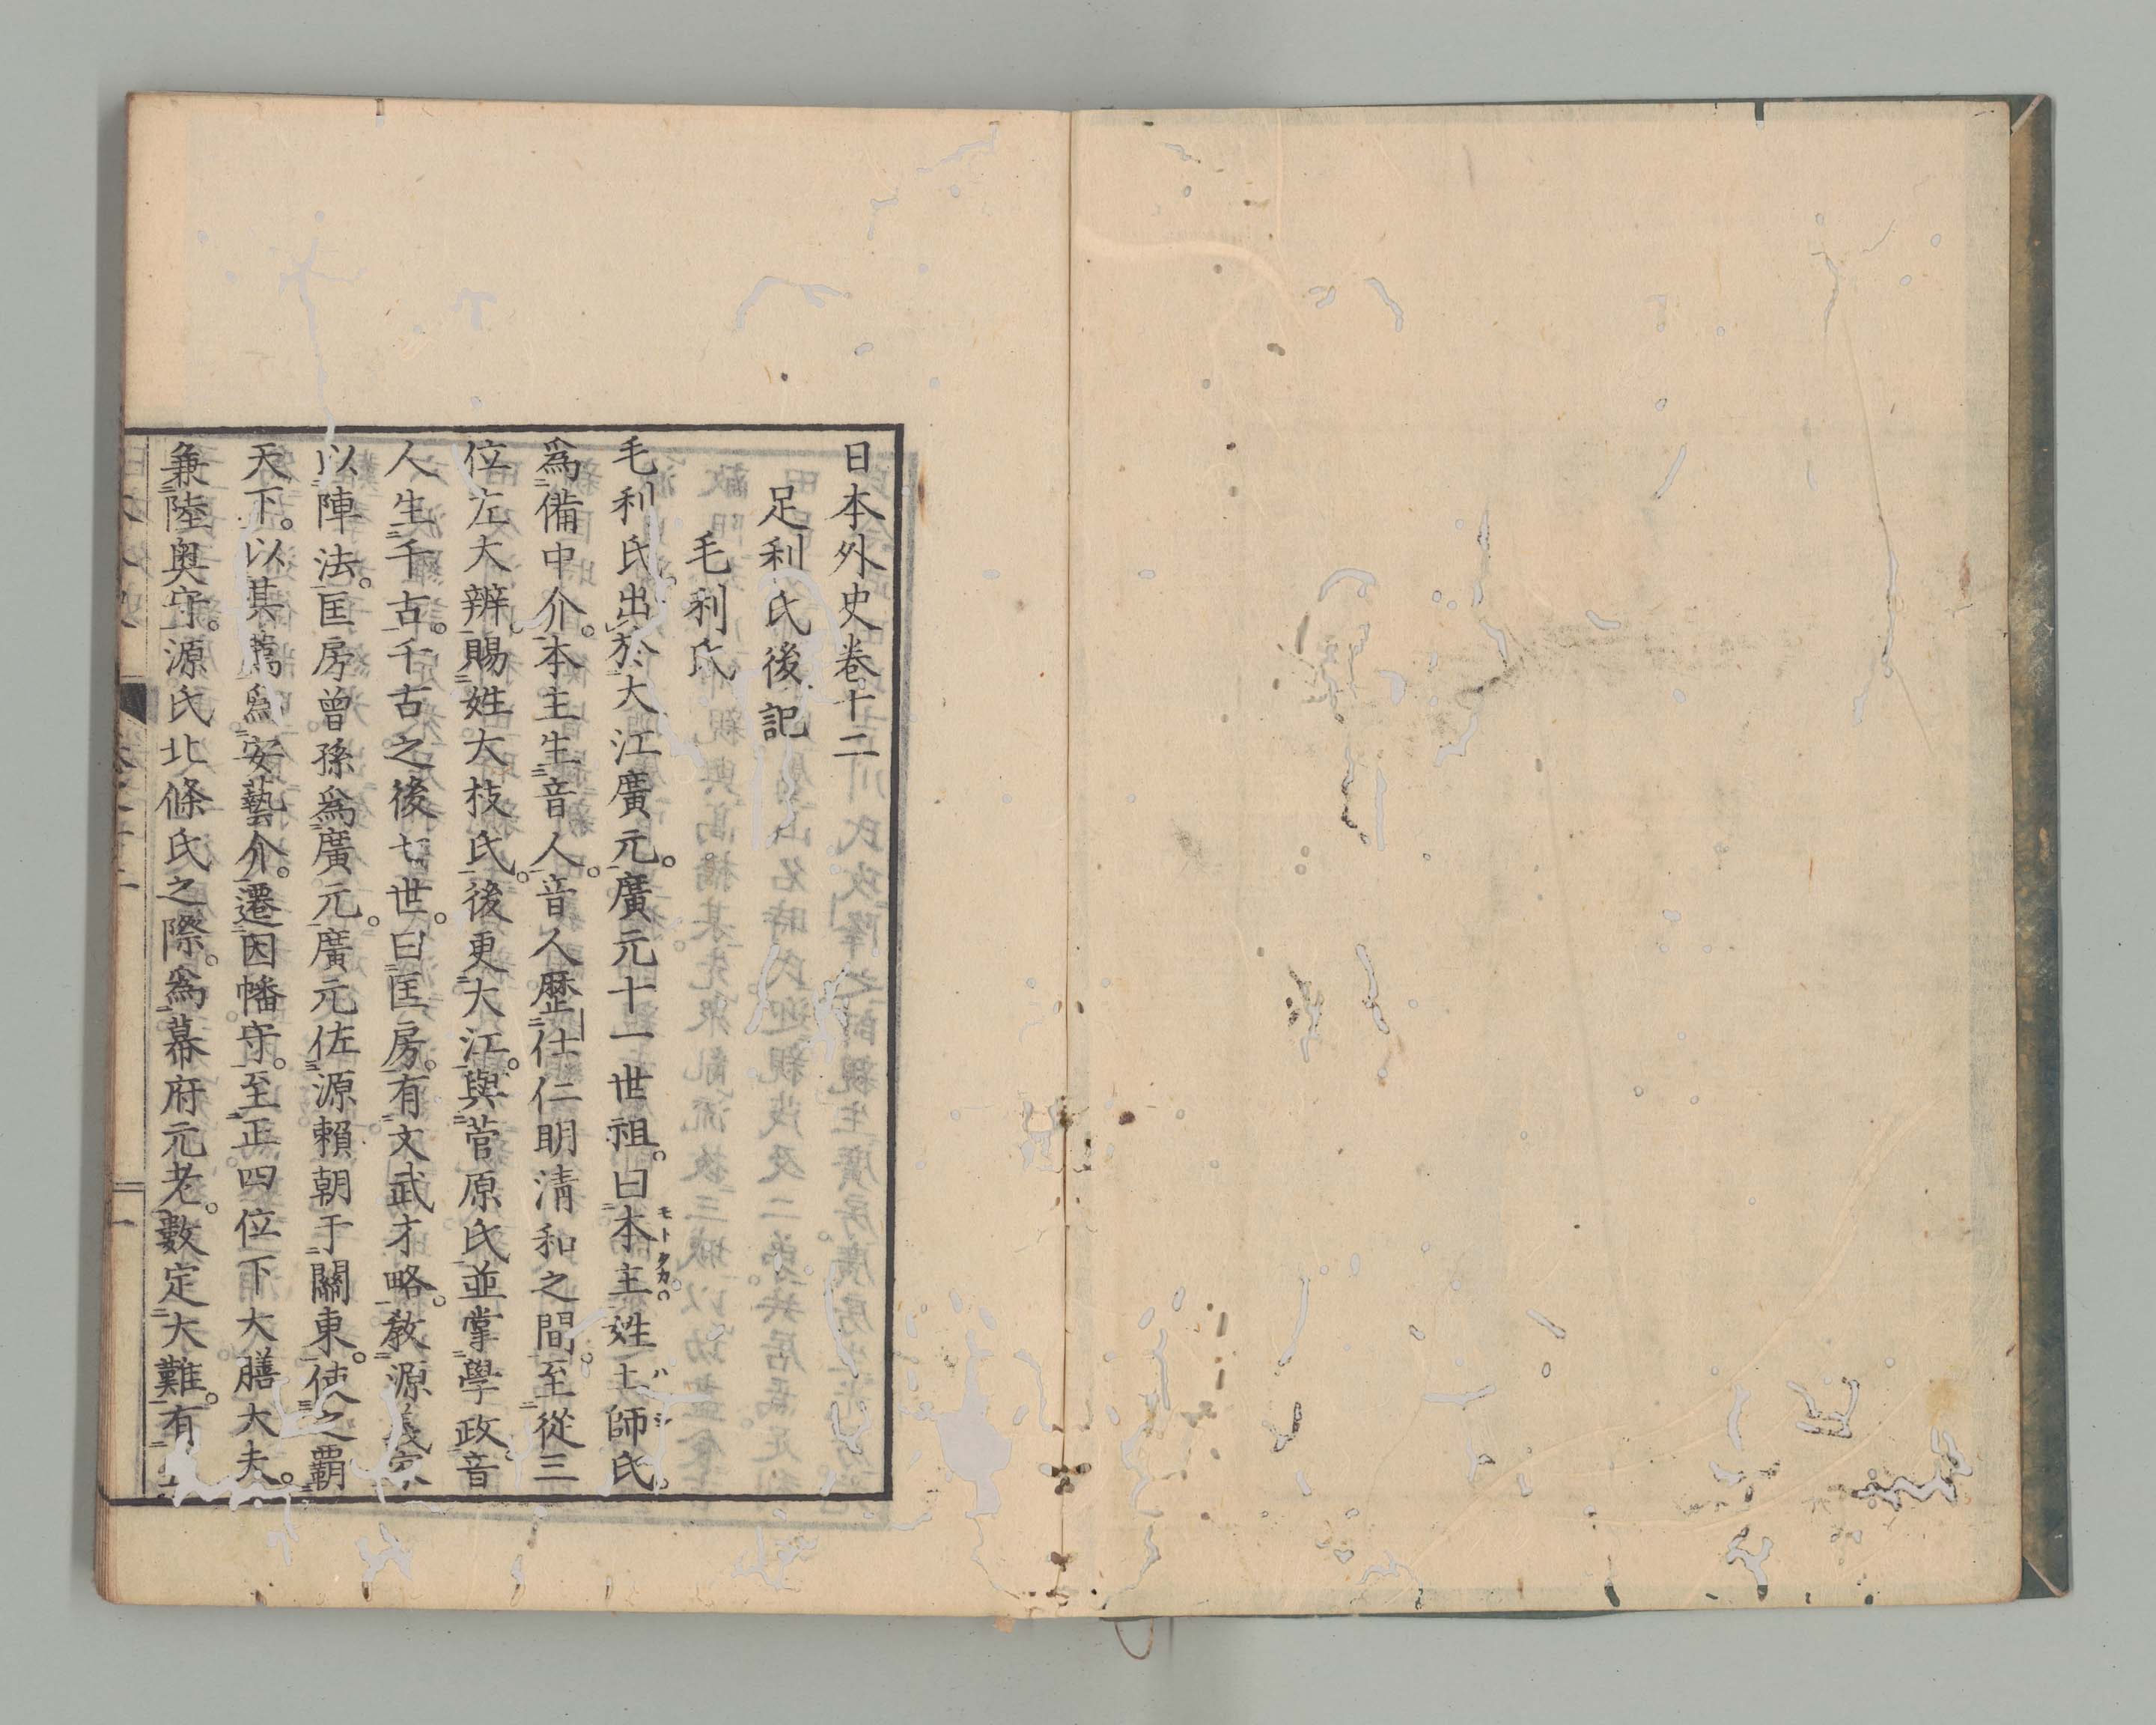 日本外史卷十二
足利氏後記
毛利氏
毛利氏。出於大江廣元。廣元十一世祖。曰本主。姓土師氏。
爲備中介。本主生音人。音人歷仕仁明淸和之間。至從三
位左大辨。賜姓大枝氏。後更大江。與菅原氏並掌學政。音
人生千古。千古之後七世。曰匡房。有文武才略。敎源義家
以陣法。匡房曾孫爲廣元。廣元佐源賴朝于關東。使之覇
天下。以其薦爲安藝介。遷因幡守。至正四位下大膳大夫。
兼陸奥守。源氏北條氏之際。爲幕府元老。數定大難。有